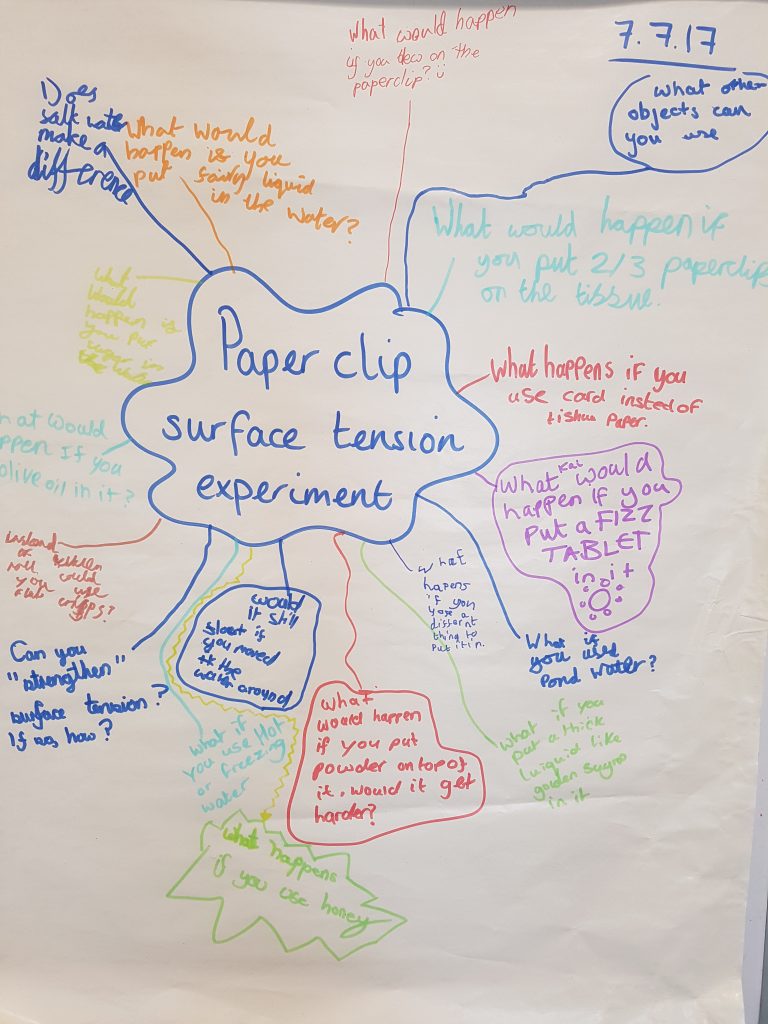 What would happen
if you
on the
paperclip?
7.7.17
what other
objects can
you use
Does
salt water
make a
difference
What would
happen is you
put fairy liquid
in the water?
What would happen if
you put 2/3 paperclips
on the tissue.
what
would
happen is
you put
in
Paper clip
surface tension
experiment
What happens if you
use card instead of
tishue paper.
Kai
What would
happen If you
Put a FIZZ
TABLET
in it
at would
ppen If you
olive oil in it?
roll could
you use
Can you
"strengthen"
surface tension?
If so, how?
would
it still
float if
you moved
the
water around
what
hapens
if you
use a
differnt
thing to
put it in.
What if
you used
Pond water?
what if
you use Hot
or freezing
water
What
would happen
if you put
powder on top of
it. would it get
harder?
what if you
put a thick
like
golden
in it
what happens
if you use honey